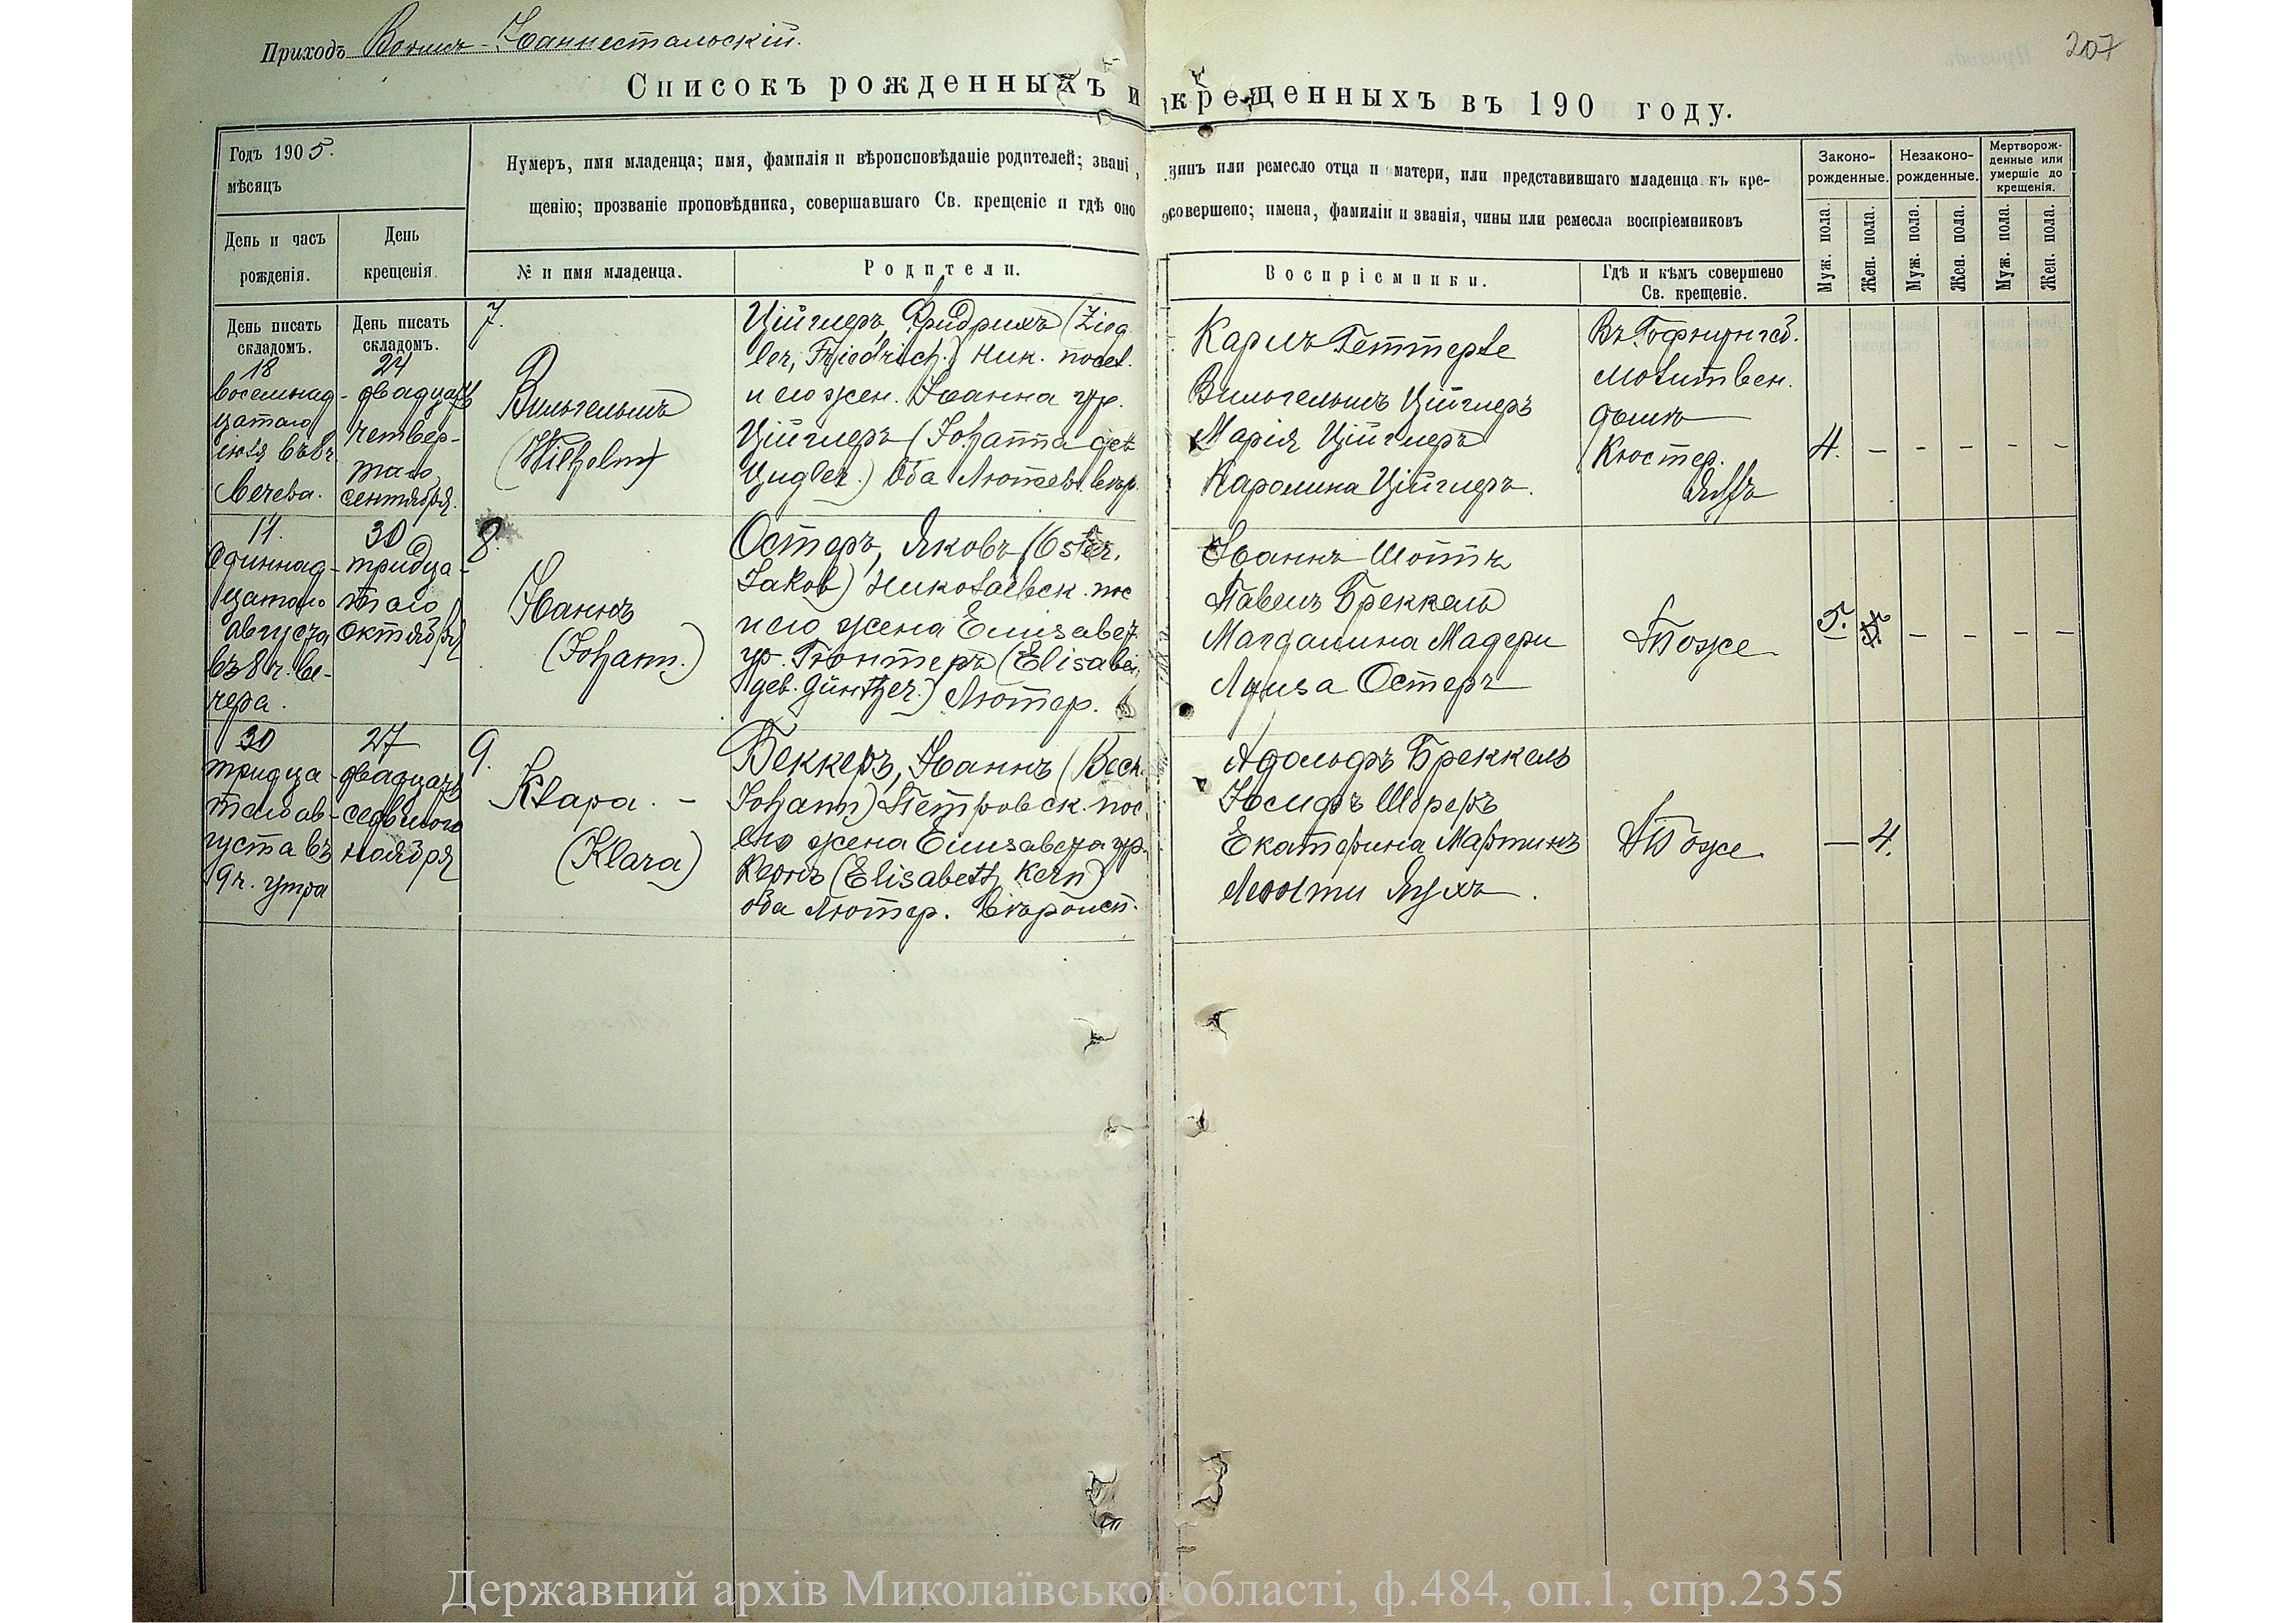 Приходъ Вормс-Іоаннестальскій.
207
Списокъ рожденныхъ и крещенныхъ въ 190 году.
Годъ 1905.
мѣсяцъ
Нумеръ, имя младенца; имя, фамилія и вѣроисповѣданіе родителей; звані, чинъ или ремесло отца и матери, или представившаго младенца къ кре-
щенію; прозваніе проповѣдника, совершавшаго Св. крещеніе и гдѣ оно совершено; имена, фамиліи и званія, чины или ремесла воспріемниковъ
Законо-
рожденные.
Незаконо-
рожденные.
Мертворож-
денные или
умершіе до
крещенія.
День и часъ
рожденія.
День
крещенія.
№ и имя младенца.
Родители.
Воспріемники.
Гдѣ и кѣмъ совершено
Св. крещеніе.
Муж. пола.
Жен. пола.
Муж. пола.
Жен. пола.
Муж. пола.
Жен. пола.
День писать
складомъ.
День писать
складомъ.
18
восемнад-
цатаго
вечера.
24
двадцать
четвер-
таго
сентября.
7.
Вильгельмъ
(Wilhelm)
Ційглеръ, Фридрихъ (Zieg-
ler, Friedrich.) Ник. посел.
и его жен. Іоанна ур.
Ційглеръ (Johanna geb
Ziegler.) Оба Лютер. вѣр.
Карлъ Геттерле
Вильгельмъ Ційглеръ
Марія Ційглеръ
Каролина Ційглеръ.
молитвен.
домѣ
Кюстер.
4. – – – – –
11.
Одиннад-
цатаго
августа
въ 8 ч. ве-
чера.
30
тридца-
таго
октября
8.
Іоаннъ
(Johann.)
Остеръ, Яковъ (Oster,
Jakob) Николаевск. пос
и его жена Елизавет.
ур. Гюнтеръ (Elisabet
geb. Günther.) Лютер.
Іоаннъ Шоттъ
Павелъ Бреккель
Магдалина Мадери
Луиза Остеръ
Тоже
5. – – – –
30
тридца-
таго ав-
густа въ
9 ч. утра
27
двадцать
седьмого
ноября
9.
Клара. –
(Klara)
Беккеръ, Іоаннъ (Beck.
Johann) Петровск. пос.
его жена Елизавета ур.
Кернъ (Elisabeth Kern)
оба Лютер. вѣроисп.
Адольфъ Бреккель
Іосифъ Шореръ
Екатерина Мартинъ
Тоже
– 4.
Державний архів Миколаївської області, ф.484, оп.1, спр.2355